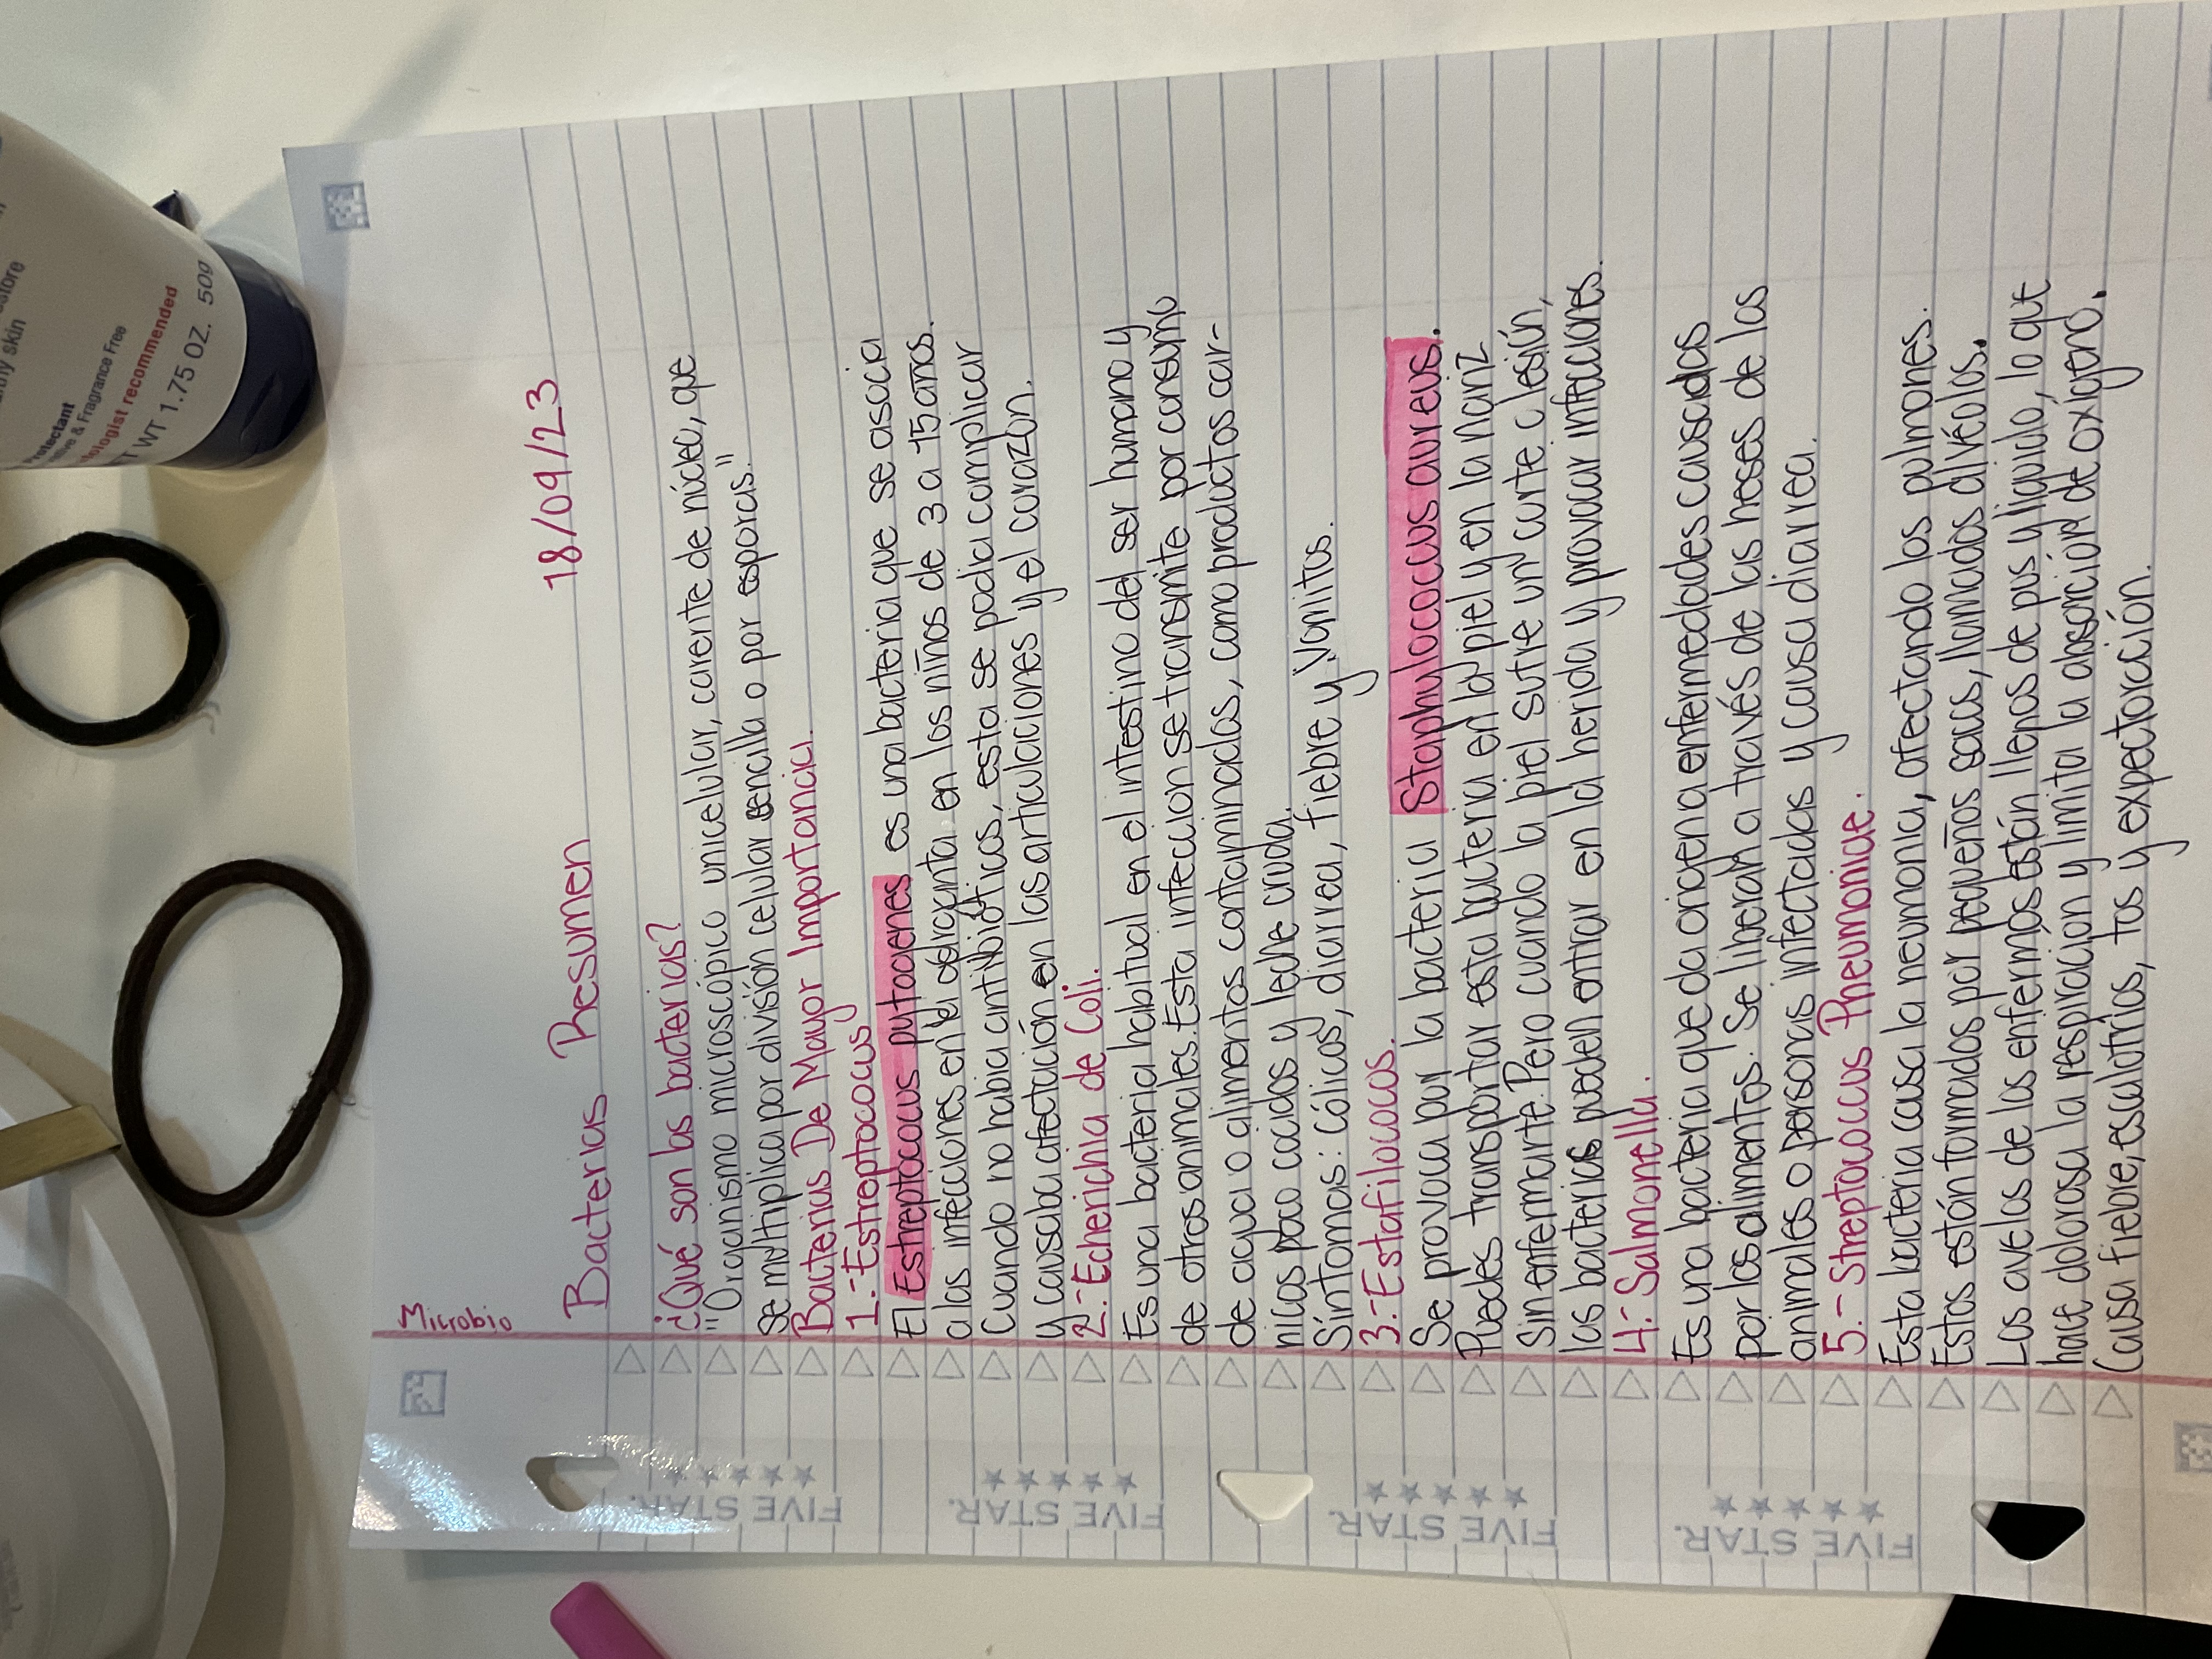 Microbio
Bacterias Resumen 18/09/23
¿Qué son las bacterias?
"Organismo microscópico unicelular, carente de núcleo, que
se multiplica por división celular sencilla o por esporas."
Bacterias De Mayor Importancia.
1.-Estreptococus
El Estreptococus pytogenes es una bacteria que se asocia
a las infeciones en la garganta en los niños de 3 a 15 años.
Cuando no habia antivibióticos, esta se podia complicar
y causaba afectación en las articulaciones y el corazón.
2.-Echerichia de Coli.
Es una bacteria habitual en el intestino del ser humano y
de otros animales. Esta infeccion se transmite por consumo
de agua o alimentos contaminados, como productos cár-
nicos poco cocidos y leche cruda.
Síntomas: cólicos, diarrea, fiebre y Vomitos.
3.-Estafilococus.
Se provoca por la bacteria Staphylococcus aureus.
Puedes transportar esta bacteria en la piel y en la nariz
Sin enfermarte. Pero cuando la piel sufre un corte o lesión,
las bacterias pueden entrar en la herida y provocar infeciones.
4.-Salmonella.
Es una bacteria que da origen a enfermedades causadas
por los alimentos. Se liberan a través de las heses de los
animales o personas infectadas y causa diarrea.
5.-Streptococcus Pneumoniae.
Esta bacteria causa la neumonia, afectando los pulmones.
Estos están formados por pequeños sacos, llamados alvéolos.
Los avelos de los enfermos están llenos de pus y liquido, lo que
hace dolorosa la respiracion y limita la absorción de oxigeno.
Causa fiebre, escalofrios, tos y expectoración.
FIVE STAR.
FIVE STAR.
FIVE STAR.
FIVE STAR.
Protectant
& Fragrance Free
recommended
WT 1.75 OZ. 50g
skin